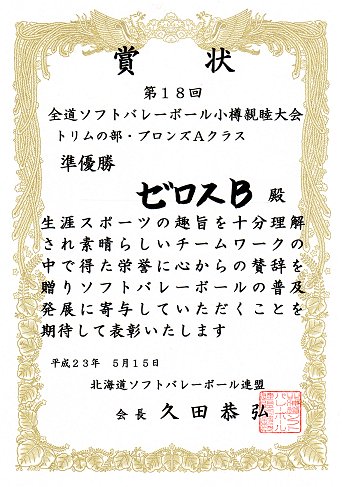 賞状
第１８回
全道ソフトバレーボール小樽親睦大会
トリムの部・ブロンズＡクラス
準優勝
ゼロスB 殿
生涯スポーツの趣旨を十分理解
され素晴らしいチームワークの
中で得た栄誉に心からの賛辞を
贈りソフトバレーボールの普及
発展に寄与していただくことを
期待して表彰いたします
平成２３年　５月１５日
北海道ソフトバレーボール連盟
会長 久田恭弘